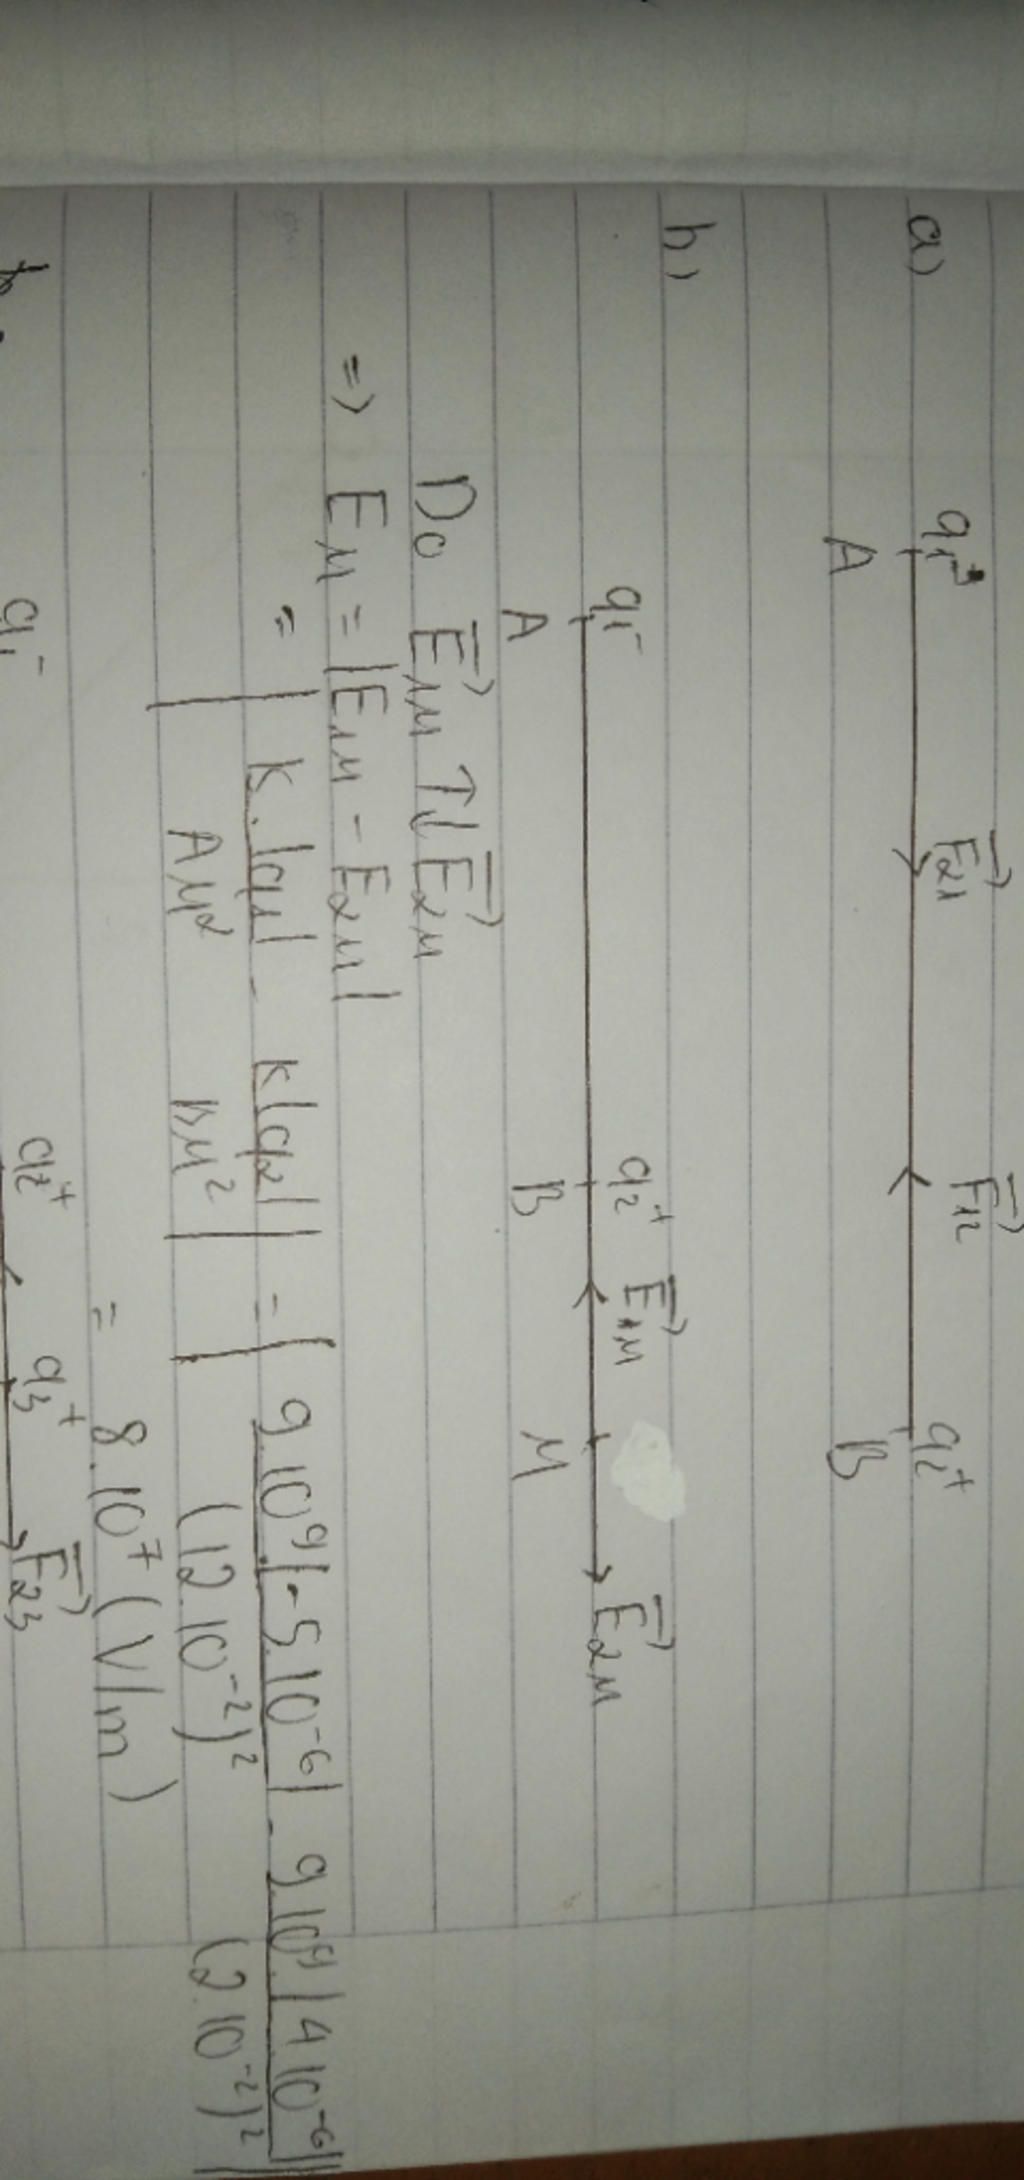 a) q₁⁻ F⃗₂₁ F⃗₁₂ q₂⁺
A B
b) q₁⁻ q₂⁺ E⃗₁M E⃗₂M
A B M
Do E⃗₁M ↑↓ E⃗₂M
=> EM = |E₁M - E₂M|
= | k.|q₁| / AM² - k|q₂| / BM² | = | 9.10⁹|-5.10⁻⁶| / (12.10⁻²)² - 9.10⁹.|4.10⁻⁶| / (2.10⁻²)² |
= 8.10⁷ (V/m)
q₁⁻ q₂⁺ q₃⁺ F⃗₂₃